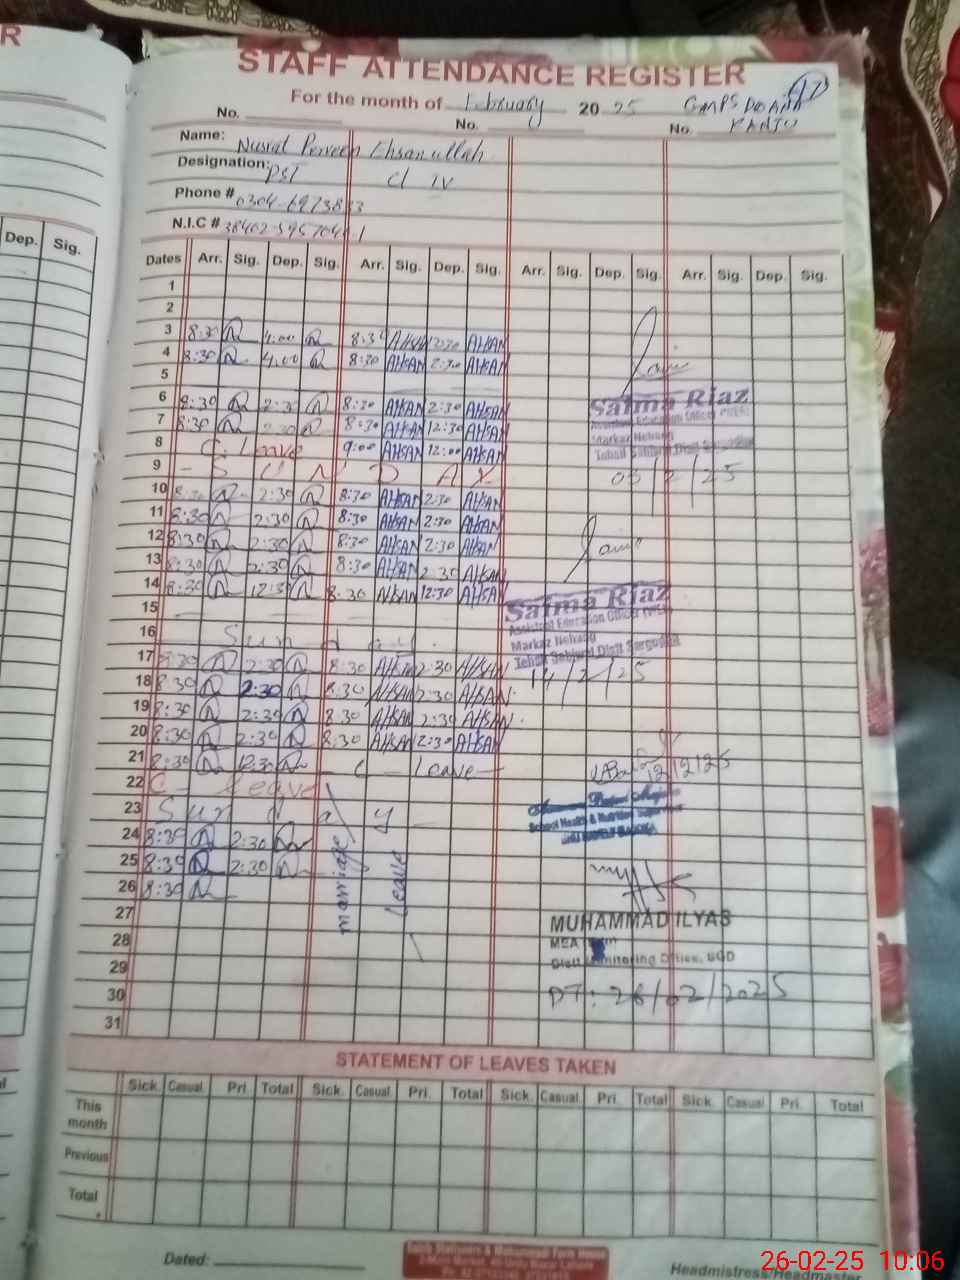 R
STAFF ATTENDANCE REGISTER
For the month of February 2025 GMPS DOANA
No. No. No. RANJU
Name: Nusrat Perveen Ehsanullah
Designation: PST Cl IV
Phone #
N.I.C #
Dep. Sig.
Dates Arr. Sig. Dep. Sig. Arr. Sig. Dep. Sig. Arr. Sig. Dep. Sig. Arr. Sig. Dep. Sig.
1
2
3 8:30 4:00 8:30 AHSAN 2:30 AHSAN
4 8:30 4:00 8:30 AHSAN 2:30 AHSAN
5
6 8:30 2:30 8:30 AHSAN 2:30 AHSAN
7 8:30 8:30 AHSAN 12:30 AHSAN
8 C. Leave 9:00 AHSAN 12:00 AHSAN
9 - S U N D A Y
10 8:30 2:30 8:30 AHSAN 2:30 AHSAN
11 8:30 2:30 8:30 AHSAN 2:30 AHSAN
12 8:30 2:30 8:30 AHSAN 2:30 AHSAN
13 8:30 2:30 8:30 AHSAN 2:30 AHSAN
14 8:30 12:30 8:30 AHSAN 12:30 AHSAN
15
16 Sunday
17 8:30 2:30 8:30 AHSAN 2:30 AHSAN
18 8:30 2:30 8:30 AHSAN 2:30 AHSAN
19 8:30 2:30 8:30 AHSAN 2:30 AHSAN
20 8:30 2:30 8:30 AHSAN 2:30 AHSAN
21 8:30 12:30 - C - Leave -
22 C - Leave
23 Sunday
24 8:30 2:30
25 8:30 2:30
26 8:30
27
28
29
30
31
marriage Leave
Saima Riaz
Assistant Education Officer
Markaz Nehang
Tehsil Sahiwal Distt Sargodha
05/2/25
Saima Riaz
Assistant Education Officer
Markaz Nehang
Tehsil Sahiwal Distt Sargodha
14/2/25
School Health & Nutrition Supervisor
MUHAMMAD ILYAS
MEA
Distt Monitoring Office, SGD
DT: 26/02/2025
STATEMENT OF LEAVES TAKEN
Sick. Casual Pri. Total Sick. Casual Pri. Total Sick. Casual Pri. Total Sick. Casual Pri. Total
This month
Previous
Total
Dated:
Headmistress/Headmaster
26-02-25 10:06